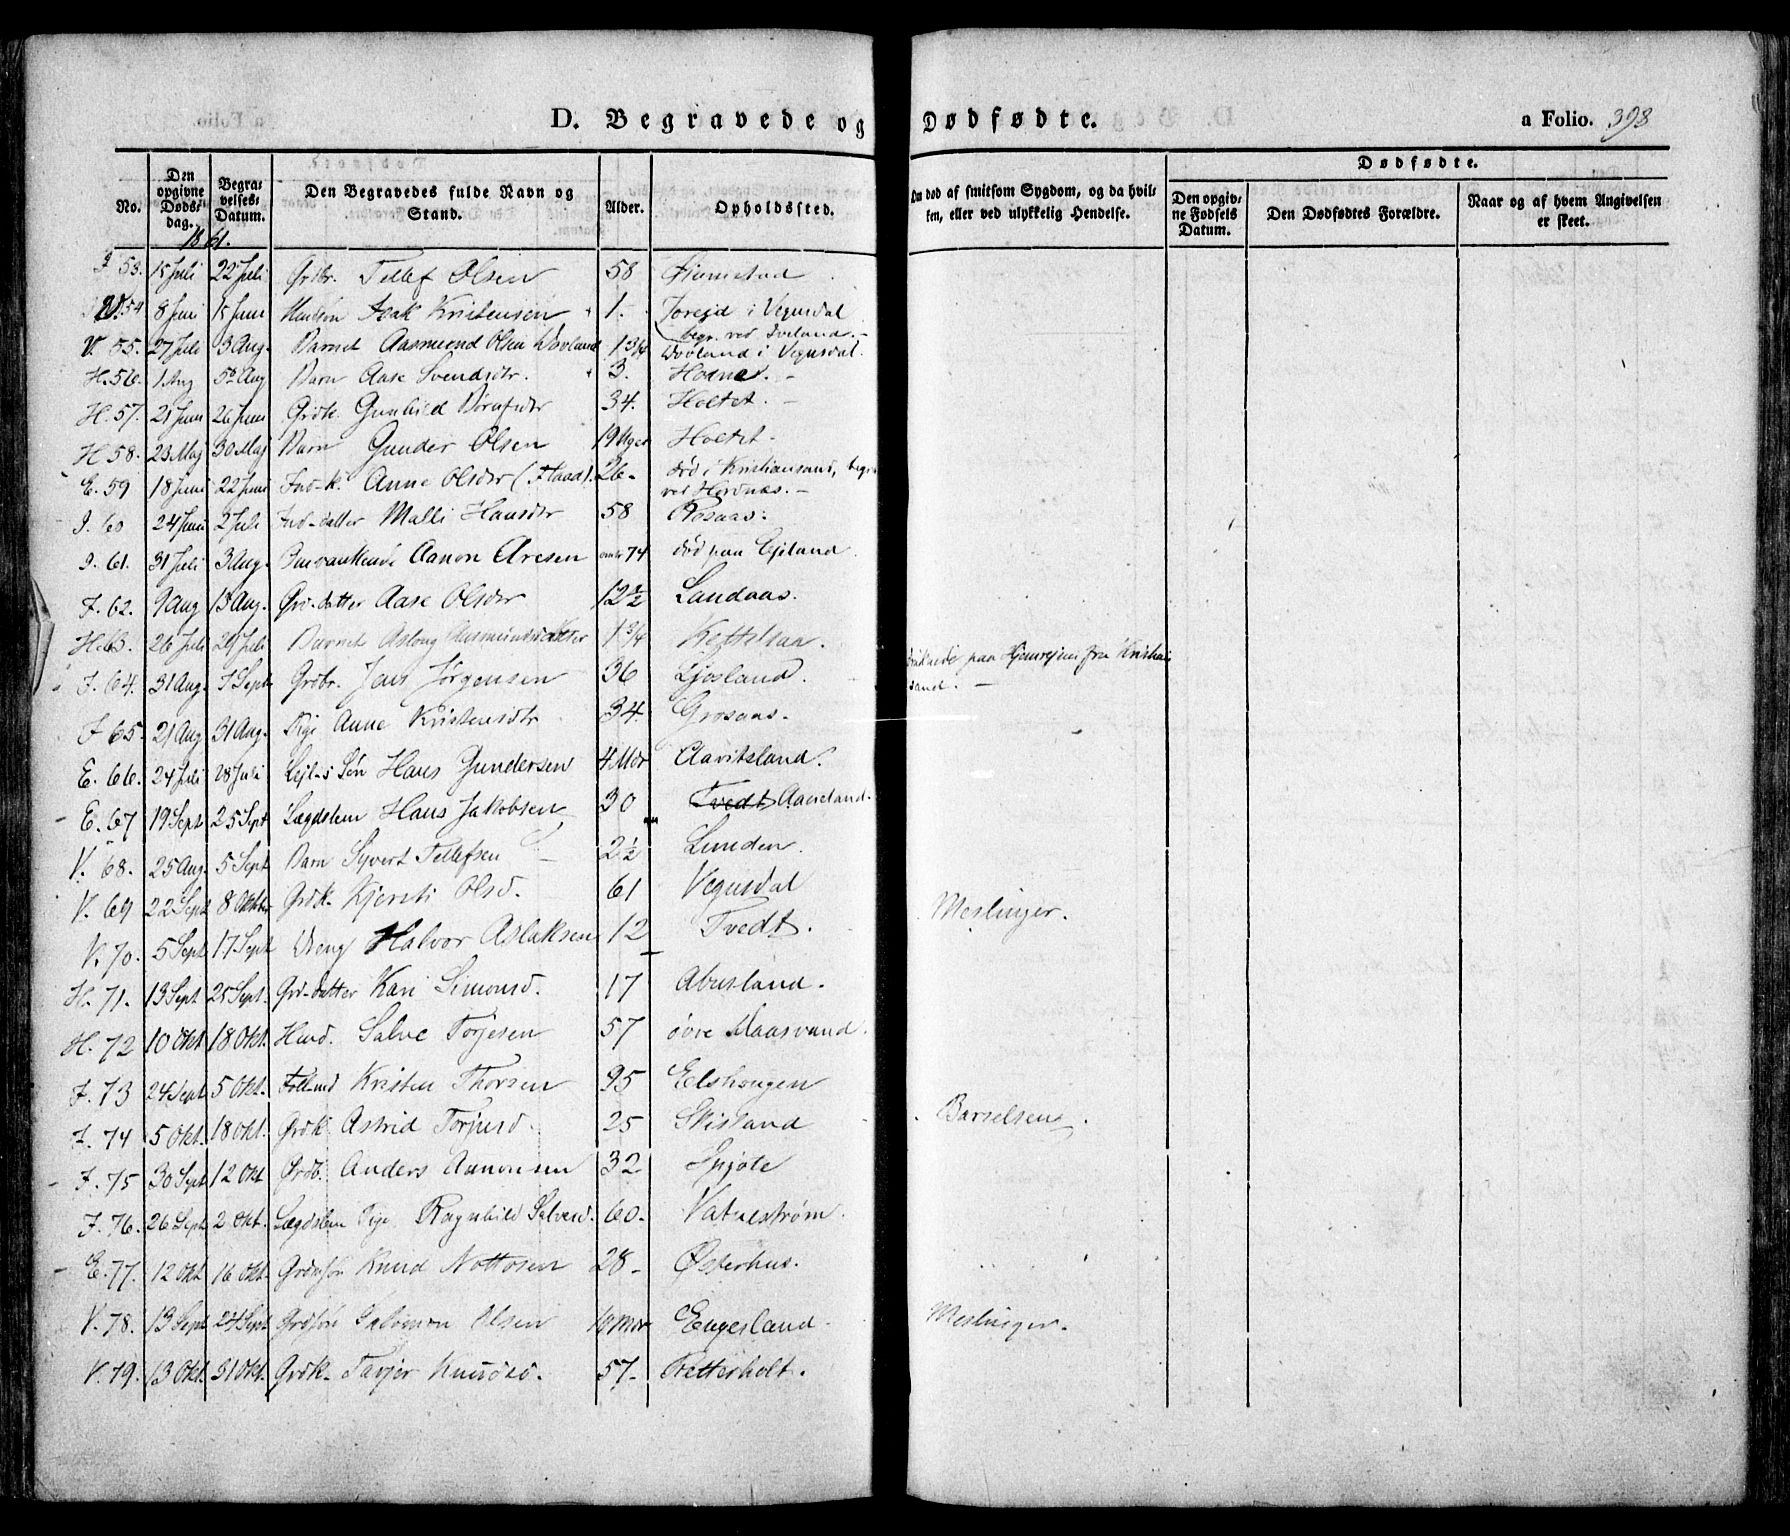 D. Begravede og Dødfødte. a Folio. 398
No. | Den opgivne Døds-dag. | Begravelses-Datum. | Den Begravedes fulde Navn og Stand. | Alder. | Opholdssted. | Om død af smitsom Sygdom, og da hvilken, eller ved ulykkelig Hendelse. | Dødfødte. | Den opgivne Fødsels Datum. | Den Dødfødtes Forældre. | Naar og af hvem Angivelsen er skeet.
1861.
53. 15 Juli 22 Juli Grdbr. Tellef Olsen 58
V. 54 8 Juni 15 Juni Isak Kristensen 1. i Vegusdal
begr. ved Iveland.
V. 55. 27 Juli 3 Aug. Barnet Aasmund Olsen Dovland 1 3/4 Dovland i Vegusdal.
H. 56. 1 Aug 5te Aug Barn Aase Svendsdtr. 3.
H. 57. 21 Juni 26 Juni Grdk. Gunhild 34. Holtet.
H. 58. 23 Maj 30 Maj Barn Gunder Olsen 19 Uger Holtet.
E. 59 18 Juni 22 Juni Ind-k. Anne Olsdtr (Flaad). 26 død i Kristiansand, begr.
ved Hordnæs.
I. 60 24 Juni 2 Juli Ind-datter Malli Hansdtr 58 Rosaas.
I. 61. 31 Juli 3 Aug. Aanon Aresen 74 død paa
I. 62. 9 Aug 13 Aug. Grd-datter Aase Olsdtr 12 1/2 Landaas.
H. 63. 26 Juli 29 Juli Barnet Aslaug 1 3/4
I. 64. 31 Aug. 7 Sept. Grdbr. Jens Jørgensen 36 Ljosland. druknede paa Hjemrejsen fra Kristian
sand.
I. 65. 21 Aug 31 Aug. Pige Anne Kristensdtr 34. Grosaas.
E. 66. 24 Juli 28 Juli Lejl-s Søn Hans Gundersen 4 Mdr Clavitsland.
E. 67 19 Sept 25 Sept Lægdslem Hans Jakobsen 30 Tvedt Aaneland.
V. 68. 25 Aug. 5 Sept Barn Syvert Tellefsen 2 1/2 Lunden.
V. 69 22 Sept 8 Oktbr Grdk. Kjersti Olsd. 61 Vegusdal Meslinger.
V. 70. 5 Sept 17 Sept Dreng Halvor Aslaksen 12 Tvedt.
H. 71. 13 Sept 25 Sept. Grd-datter Kari Simonsd. 17 Abusland.
H. 72 10 Okt. 18 Okt. Husd. Salve Torjesen 57 øvre Maasvand.
I. 73 24 Sept 5 Okt. Kristen Thorsen 95 Elshougen
I. 74 5 Okt. 18 Okt. Grdk Astrid Torjusd. 25 Skisland Barselseng.
I. 75 30 Sept 12 Okt Grdb. Anders Aanonsen 32 Spjote
I. 76. 26 Sept 2 Okt. Lægdslem Pige Ragnhild Salvesd. 60. Vatnestrøm.
E. 77. 12 Okt 16 Okt. Knud Nottosen 28 Østerhus.
V. 78. 13 Sept 24 Sept Salomon Olsen 10 Mdr Engesland. Meslinger.
V. 79. 13 Okt 31 Okt. Grdk. Tarjer Knudsd. 57 Tvetterholt.